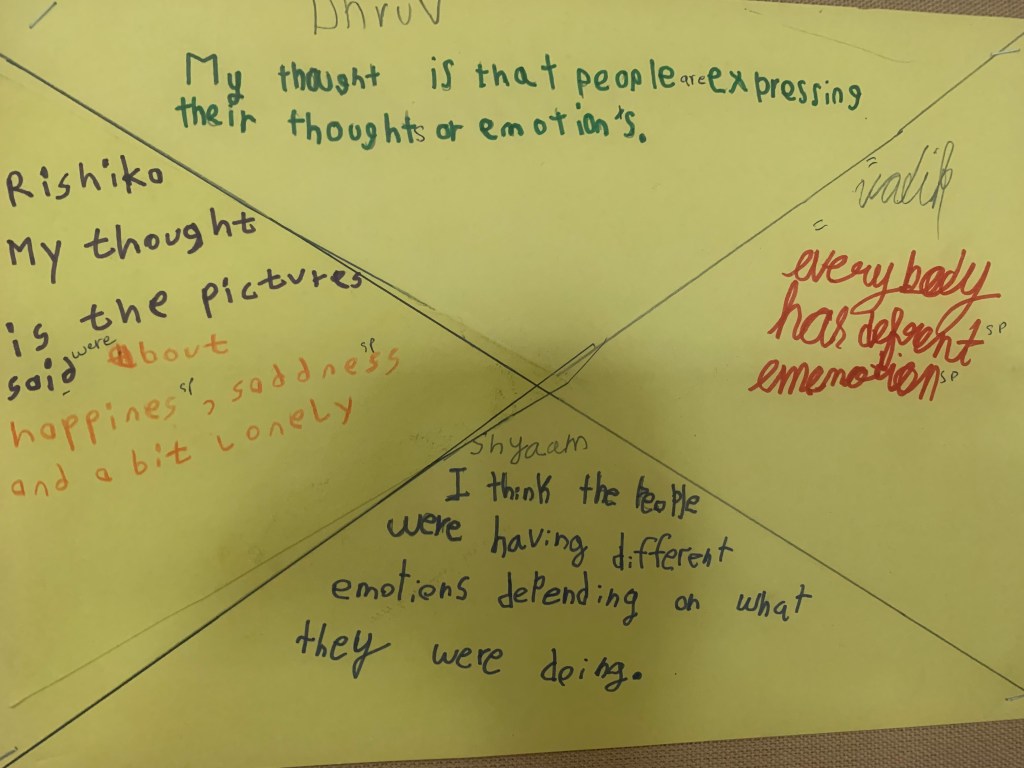 Dhruv
My thought is that people are expressing
their thoughts or emotion's.
Rishiko
My thought
is the pictures
said were about
happines sp, saddness sp
and a bit Lonely
vadik
everybody
has defrent sp
ememotion sp
Shyaam
I think the People
were having different
emotions depending on what
they were doing.